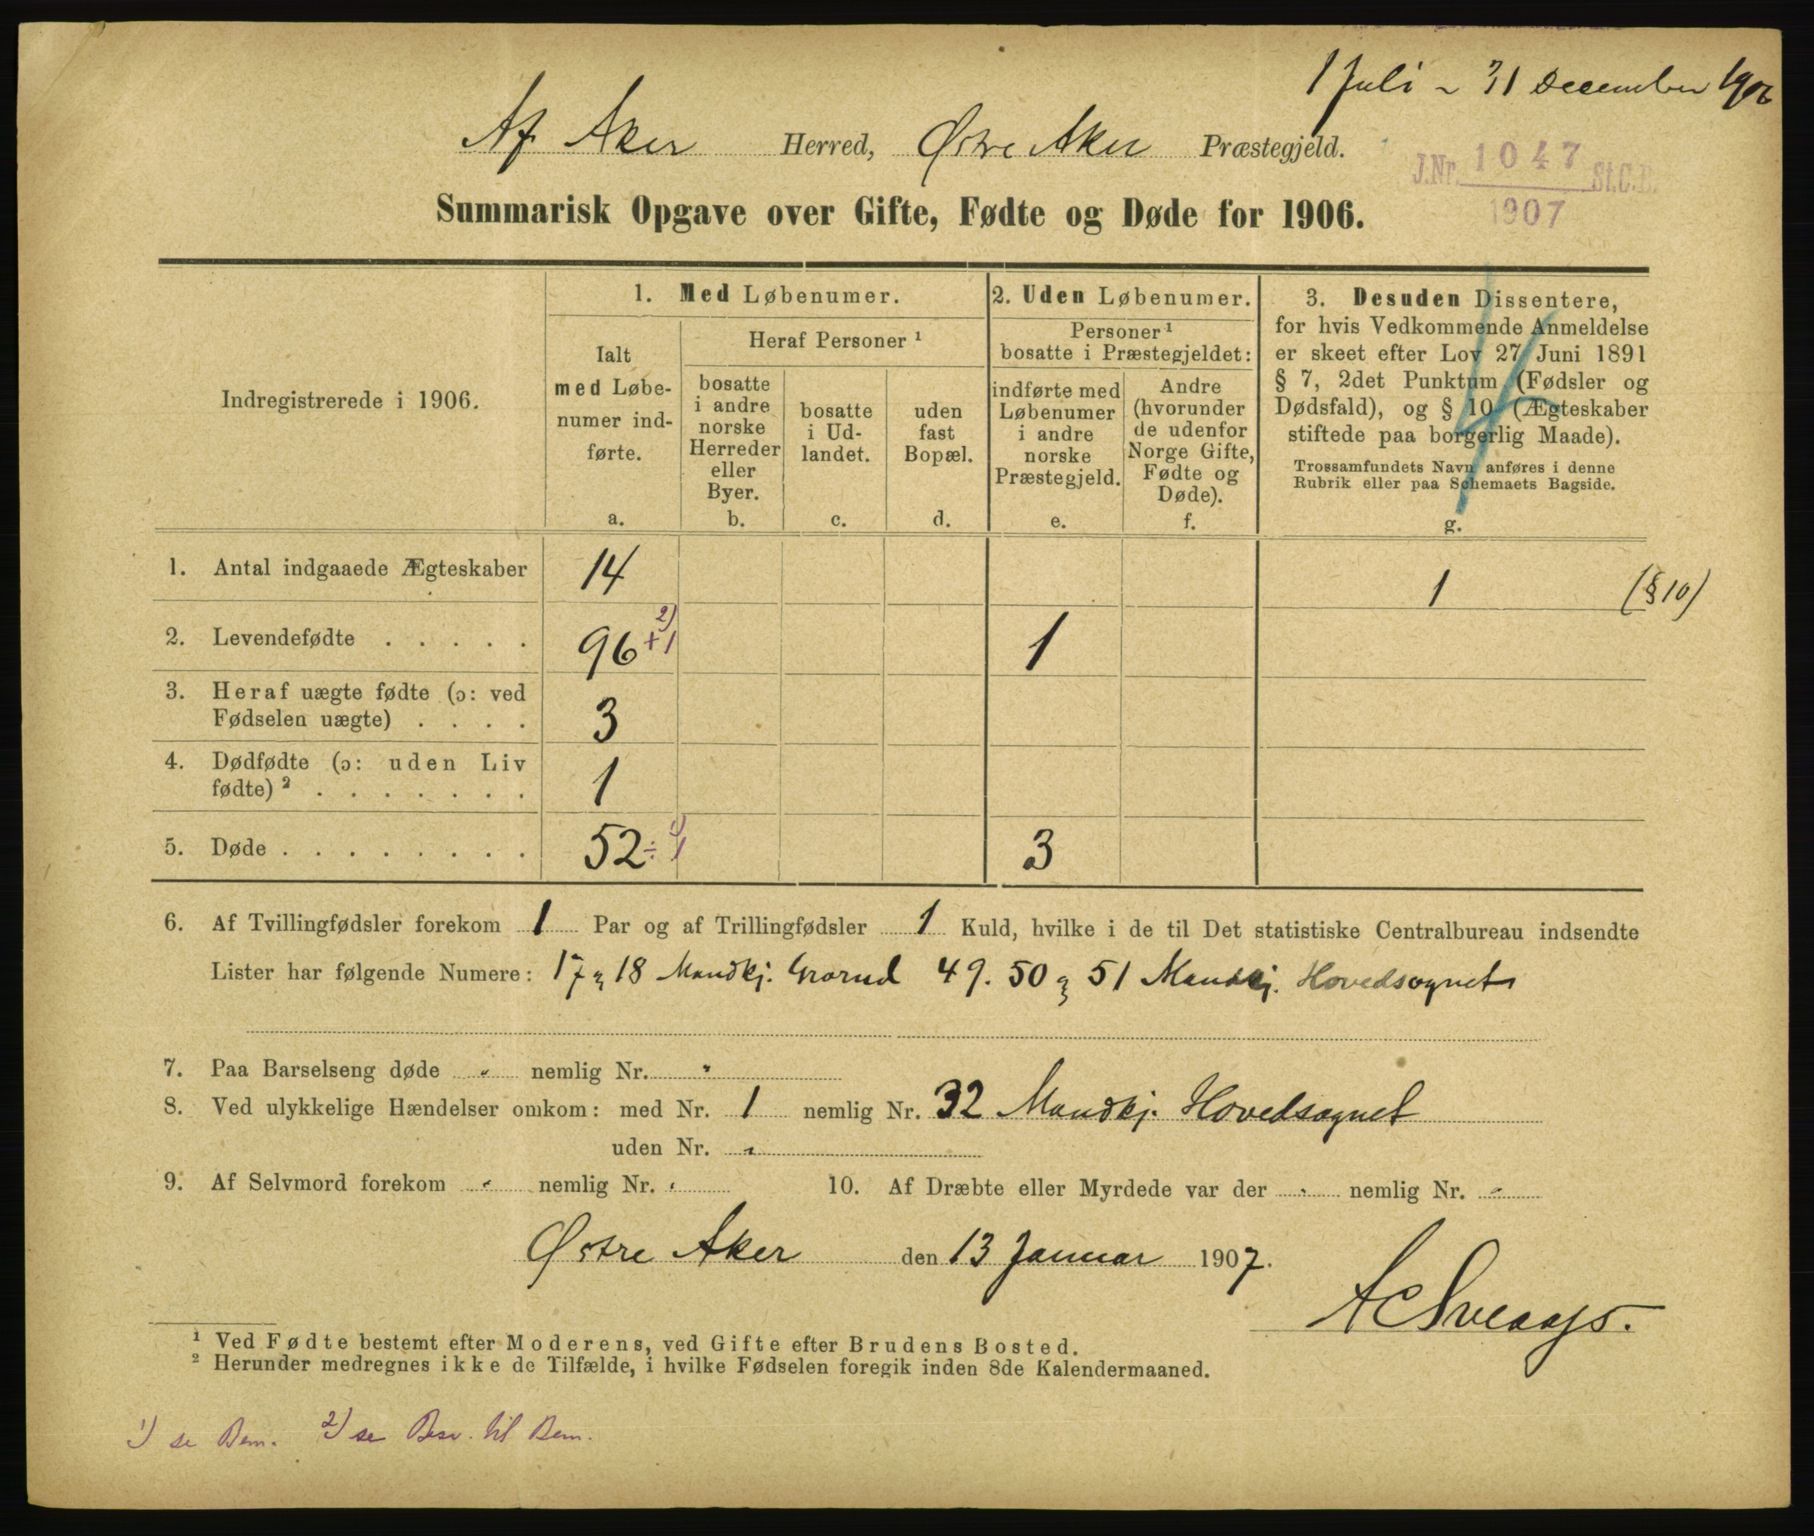 1 Juli ~ 31 December 1906
Af Aker Herred, Østre Aker Præstegjeld.
J.Nr. 1047 St.C.B.
1907
Summarisk Opgave over Gifte, Fødte og Døde for 1906.
Indregistrerede i 1906.
1. Med Løbenumer.
Ialt
med Løbe-
numer ind-
førte.
a.
Heraf Personer ¹
bosatte
i andre
norske
Herreder
eller
Byer.
b.
bosatte
i Ud-
landet.
c.
uden
fast
Bopæl.
d.
2. Uden Løbenumer.
Personer ¹
bosatte i Præstegjeldet:
indførte med
Løbenumer
i andre
norske
Præstegjeld.
e.
Andre
(hvorunder
de udenfor
Norge Gifte,
Fødte og
Døde).
f.
3. Desuden Dissentere,
for hvis Vedkommende Anmeldelse
er skeet efter Lov 27 Juni 1891
§ 7, 2det Punktum (Fødsler og
Dødsfald), og § 10 (Ægteskaber
stiftede paa borgerlig Maade).
Trossamfundets Navn anføres i denne
Rubrik eller paa Schemaets Bagside.
g.
1. Antal indgaaede Ægteskaber 14 1 (§ 10)
2. Levendefødte . . . . . 96 +1 2) 1
3. Heraf uægte fødte (ɔ: ved
Fødselen uægte) . . . . 3
4. Dødfødte (ɔ: uden Liv
fødte) ² . . . . . . . 1
5. Døde . . . . . . . . 52 ÷ 1 1) 3
6. Af Tvillingfødsler forekom 1 Par og af Trillingfødsler 1 Kuld, hvilke i de til Det statistiske Centralbureau indsendte
Lister har følgende Numere: 17 og 18 Mandkj. Grorud 49. 50 og 51 Mandkj. Hovedsognet
7. Paa Barselseng døde " nemlig Nr. "
8. Ved ulykkelige Hændelser omkom: med Nr. 1 nemlig Nr. 32 Mandkj. Hovedsognet
uden Nr. "
9. Af Selvmord forekom " nemlig Nr. " 10. Af Dræbte eller Myrdede var der " nemlig Nr. "
Østre Aker den 13 Januar 1907.
¹ Ved Fødte bestemt efter Moderens, ved Gifte efter Brudens Bosted.
² Herunder medregnes ikke de Tilfælde, i hvilke Fødselen foregik inden 8de Kalendermaaned.
1) se Bem. 2) se Besv. til Bem.